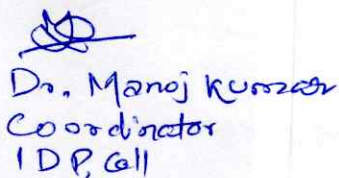 Dr. Manoj Kumar
Coordinator
IDP, Cell